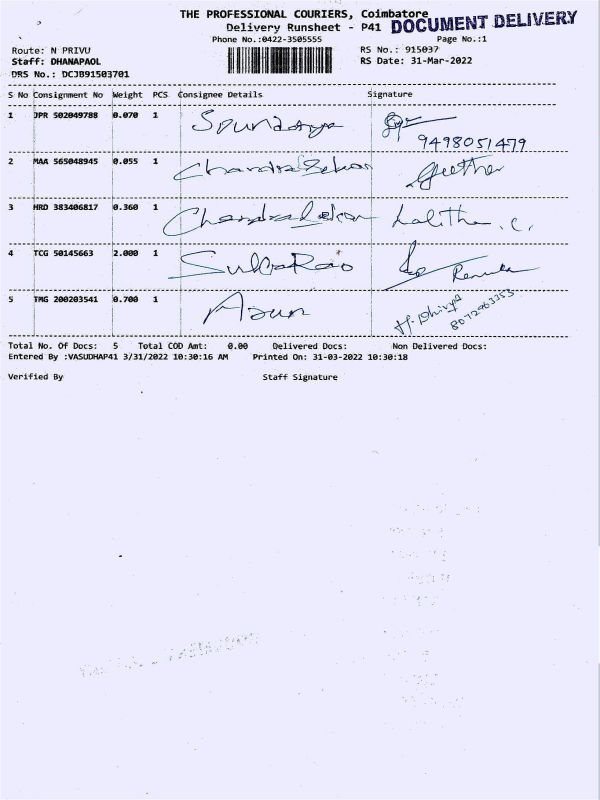 THE PROFESSIONAL COURIERS, Coimbatore
DOCUMENT DELIVERY
Delivery Runsheet - P41
Phone No.:0422-3505555 Page No.:1
Route: N PRIVU RS No.: 915037
Staff: DHANAPAOL RS Date: 31-Mar-2022
DRS No.: DCJB91503701
S No Consignment No Weight PCS Consignee Details Signature
1 JPR 502049788 0.070 1 Soundarya
9498051479
2 MAA 565048945 0.055 1 Chandra Sekar Geetha
3 HRD 383406817 0.360 1 Chandra Sekar Lalitha. C.
4 TCG 50145663 2.000 1 SubbaRao Renuka
5 TMG 200203541 0.700 1 Arun H. Dhivya
8072063353
Total No. Of Docs: 5 Total COD Amt: 0.00 Delivered Docs: Non Delivered Docs:
Entered By :VASUDHAP41 3/31/2022 10:30:16 AM Printed On: 31-03-2022 10:30:18
Verified By Staff Signature